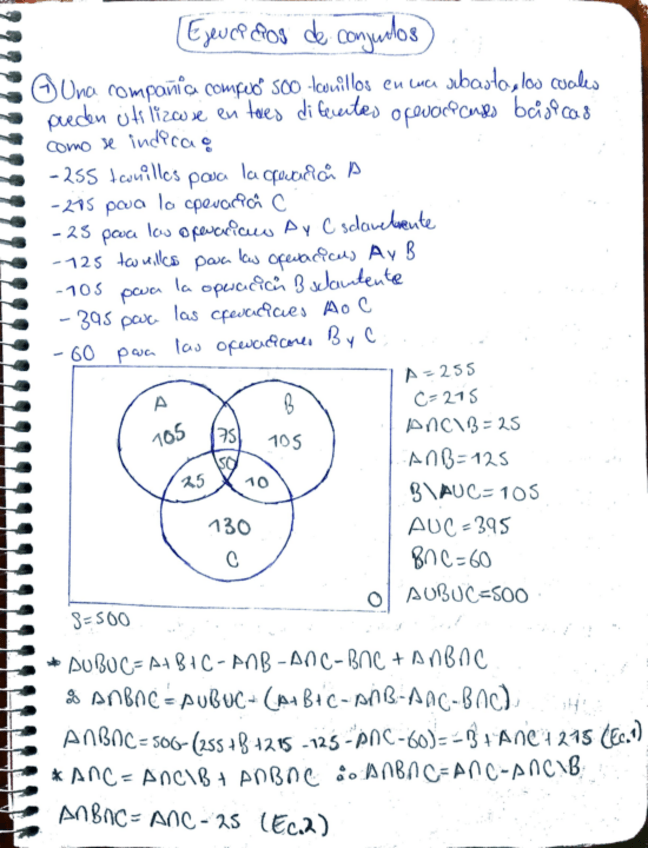 Ejercicios de conjuntos
① Una compañía compró 500 tornillos en una subasta, los cuales
pueden utilizarse en tres diferentes operaciones básicas
como se indica:
-255 tornillos para la operación A
-215 para la operación C
-25 para las operaciones A y C solamente
-125 tornillos para las operaciones A y B
-105 para la operación B solamente
-395 para las operaciones A o C
-60 para las operaciones B y C.
A = 255
C = 215
A∩C\B = 25
A∩B = 125
B\A∪C = 105
A∪C = 395
B∩C = 60
A∪B∪C = 500
A
B
105
75
105
50
25
10
130
C
O
S = 500
* A∪B∪C = A+B+C - A∩B - A∩C - B∩C + A∩B∩C
∴ A∩B∩C = A∪B∪C - (A+B+C - A∩B - A∩C - B∩C)
A∩B∩C = 500 - (255+B+215 - 125 - A∩C - 60) = -B + A∩C + 215 (Ec.1)
* A∩C = A∩C\B + A∩B∩C ∴ A∩B∩C = A∩C - A∩C\B
A∩B∩C = A∩C - 25 (Ec.2)